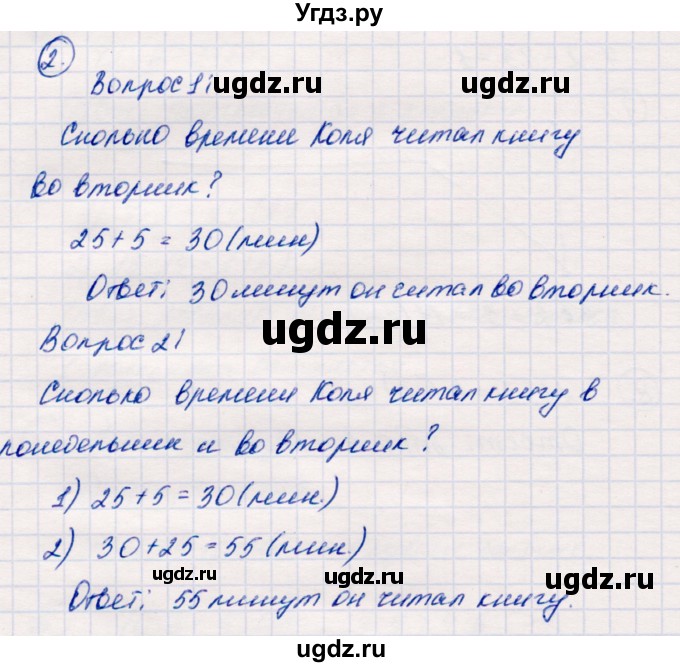 Угдз.ру
2.
Вопрос 1: ugdz.ru ugdz.ru
Сколько времени Коля читал книгу
во вторник?
25+5 = 30 (мин)
Ответ: 30 минут он читал во вторник.
ugdz.ru
Вопрос 2:
Сколько времени Коля читал книгу в
понедельник и во вторник?
1) 25+5 = 30 (мин.)
2) 30+25 = 55 (мин.)
ugdz.ru ugdz.ru
Ответ: 55 минут он читал книгу.
ugdz.ru ugdz.ru